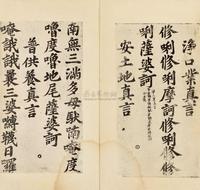 淨口業真言
修唎修唎摩訶修唎修修
唎薩婆訶
安土地真言
南無三滿多母馱喃唵度
嚕度嚕地尾薩婆訶
普供養真言
唵誐誐曩三婆嚩襪日羅